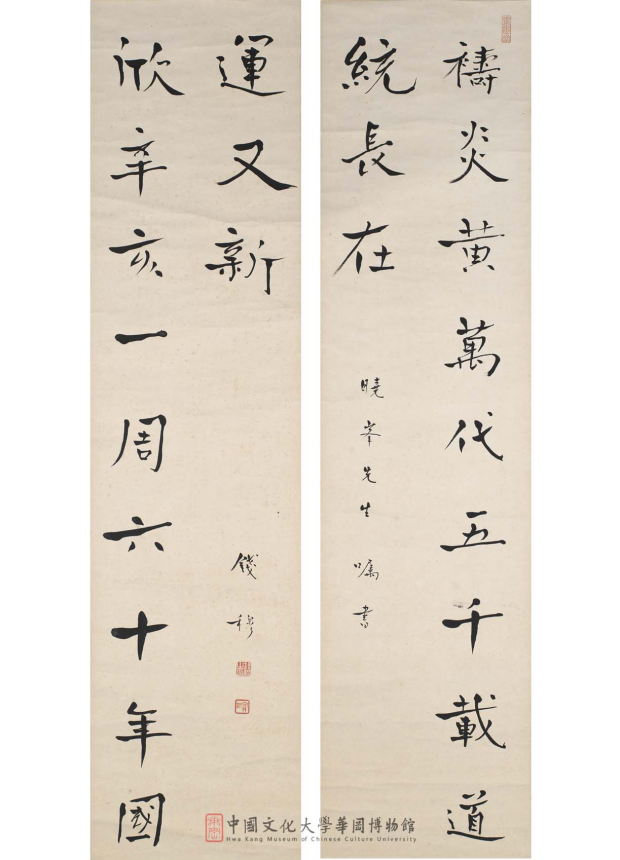 禱炎黄萬代五千載道
統長在
曉峯先生 囑書
欣辛亥一周六十年國
運又新
錢穆
中國文化大學華岡博物館
Hwa Kang Museum of Chinese Culture University